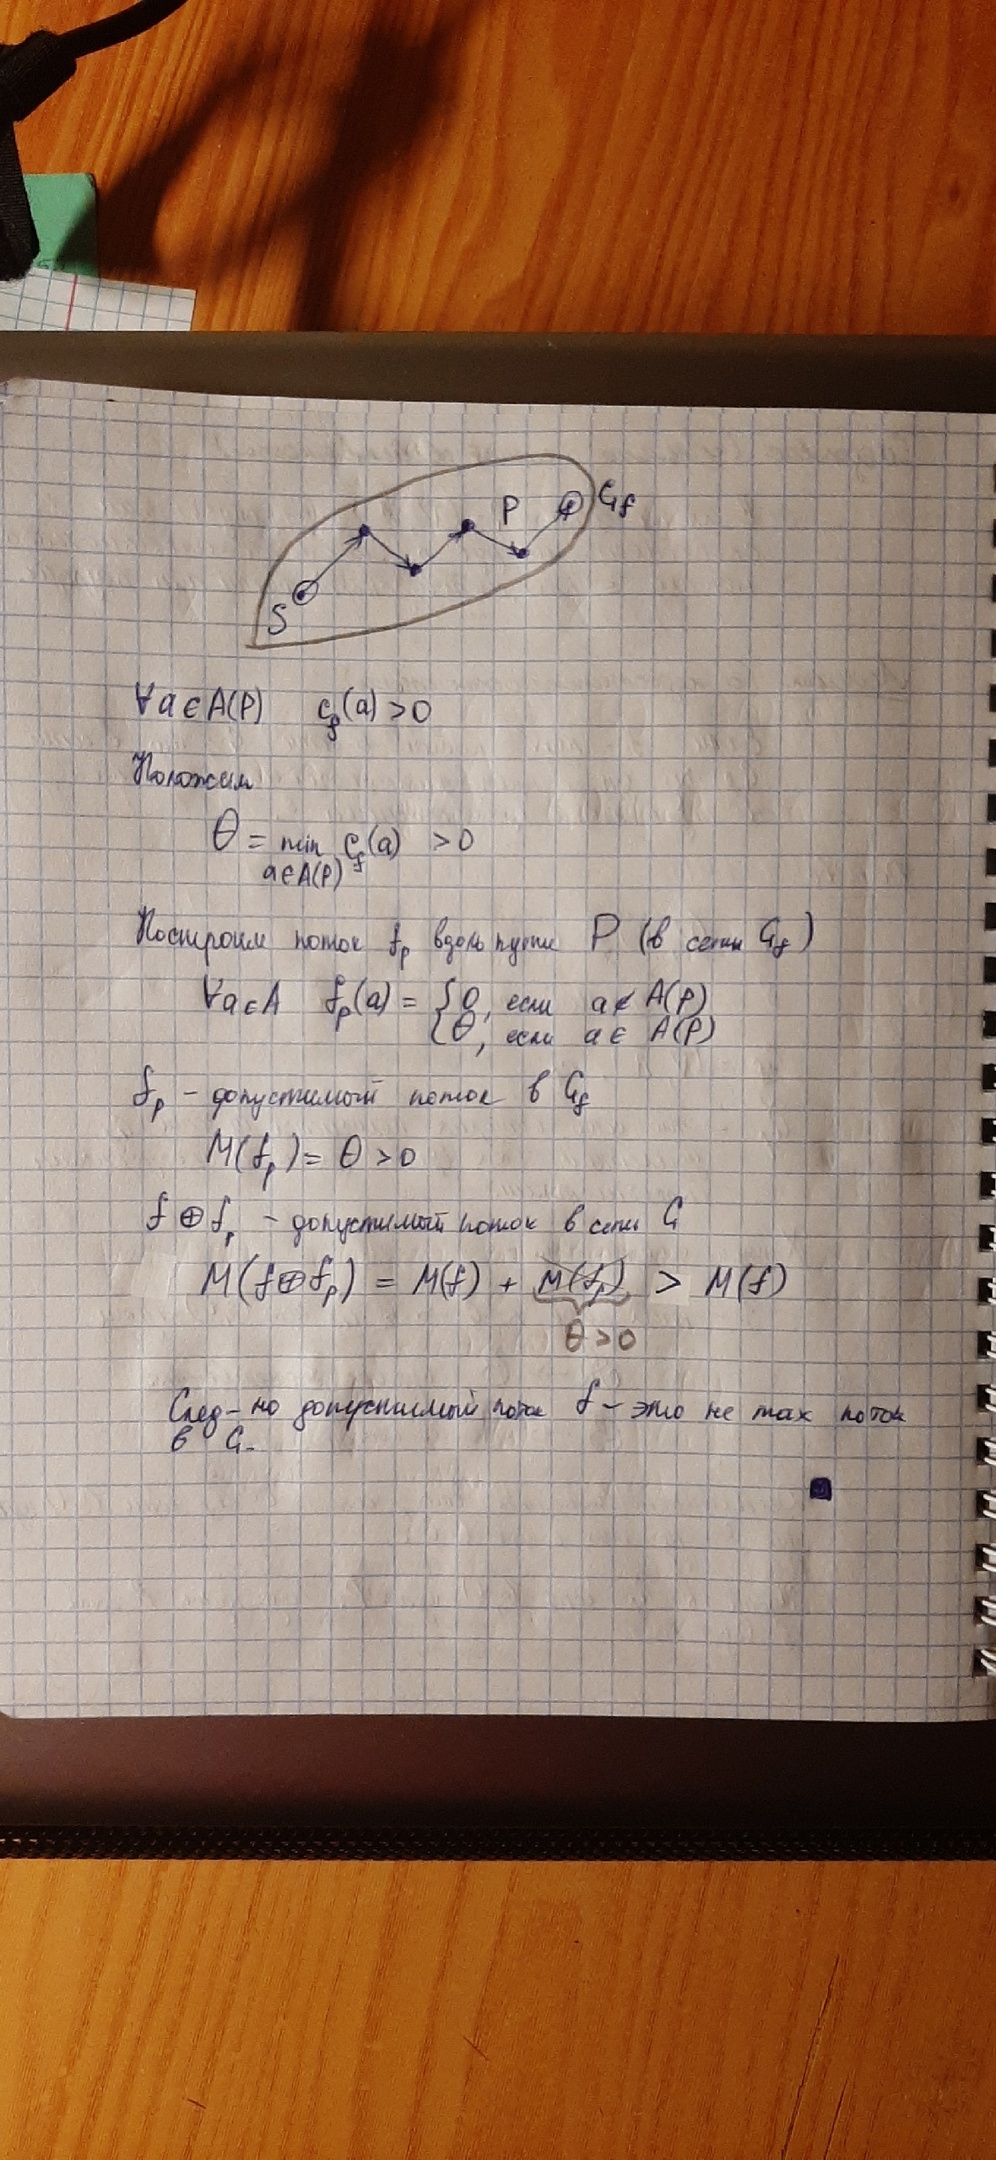 P G_f
S t
∀a∈A(P) c_f(a) > 0
Положим
θ = min c_f(a) > 0
a∈A(P)
Построим поток f_P вдоль пути P (в сети G_f)
∀a∈A f_P(a) = { 0, если a∉A(P)
{ θ, если a∈A(P)
f_P – допустимый поток в G_f
M(f_P) = θ > 0
f ⊕ f_P – допустимый поток в сети G
M(f⊕f_P) = M(f) + M(f_P) > M(f)
θ > 0
След-но допустимый поток f – это не max поток
в G.